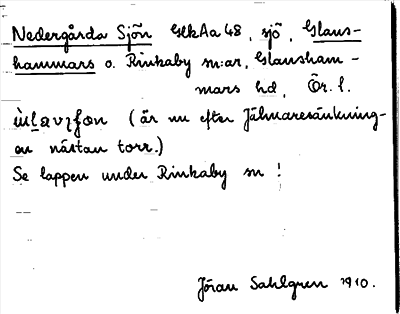 Nedergårda Sjön GekAa 48, sjö, Glans-
hammars o. Rinkaby sn:ar, Glansham-
mars hd, Ör. l.
(är nu efter Hjälmaresänkning-
en nästan torr.)
Se lappen under Rinkaby sn!
Jöran Sahlgren 1910.